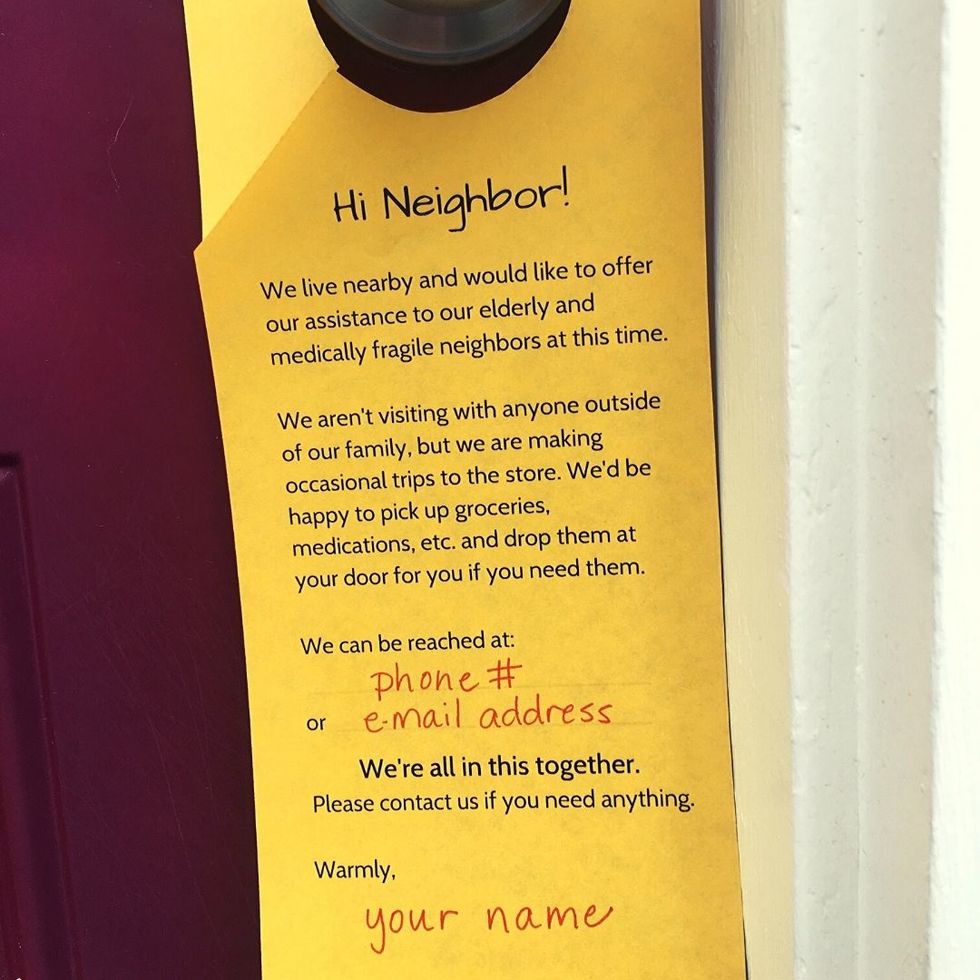 Hi Neighbor!
We live nearby and would like to offer
our assistance to our elderly and
medically fragile neighbors at this time.
We aren't visiting with anyone outside
of our family, but we are making
occasional trips to the store. We'd be
happy to pick up groceries,
medications, etc. and drop them at
your door for you if you need them.
We can be reached at:
phone #
or e-mail address
We're all in this together.
Please contact us if you need anything.
Warmly,
your name